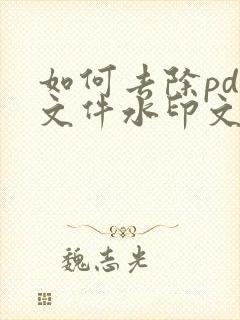 如何去除pd
文件水印文
魏志光